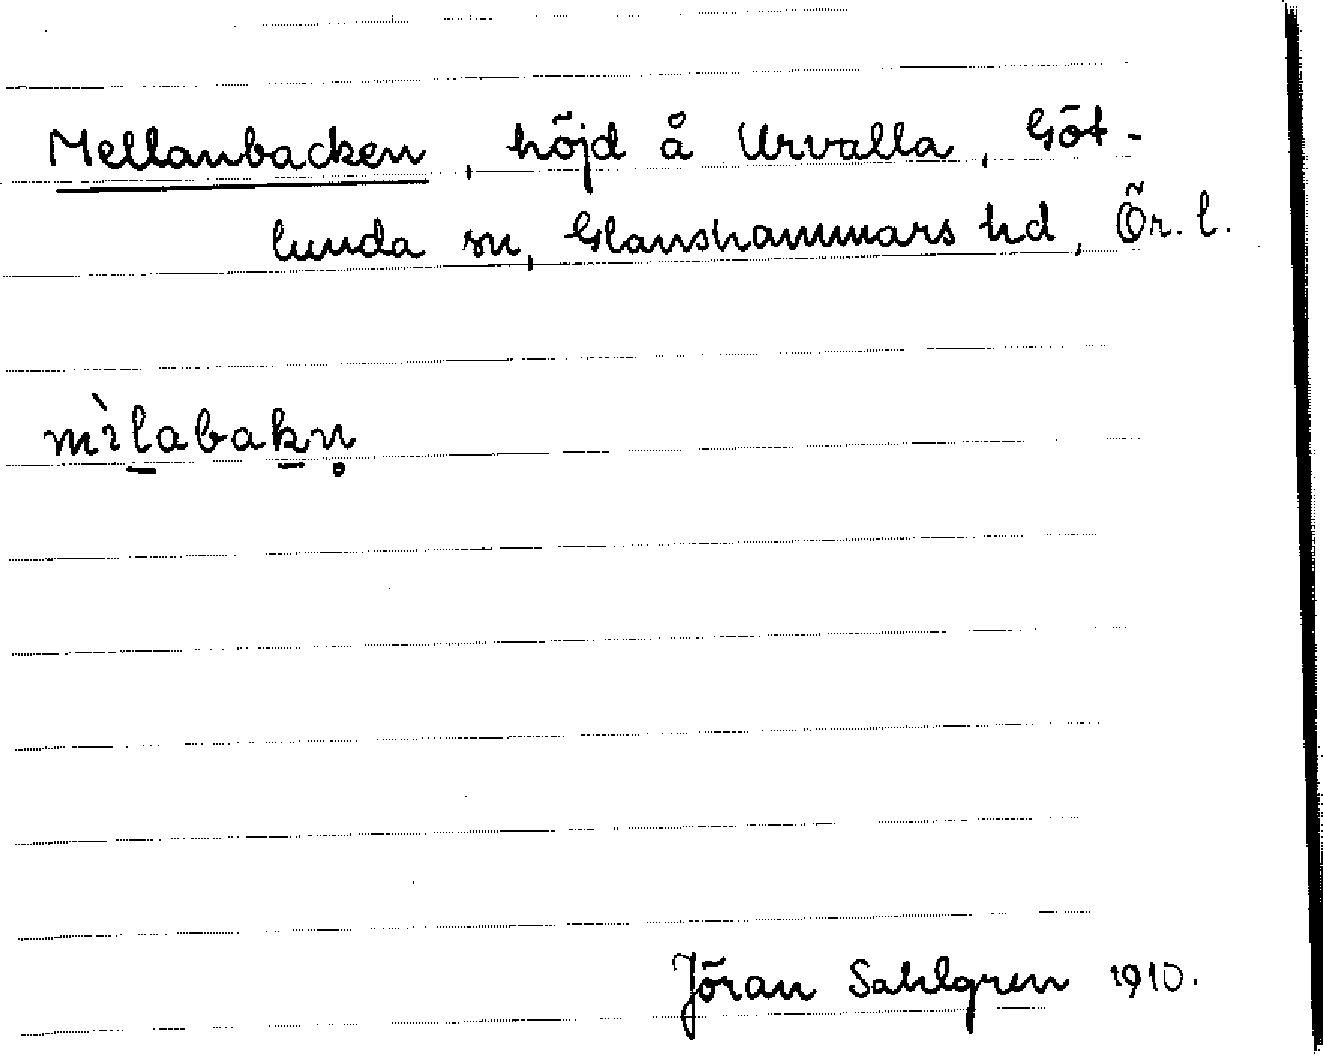 Mellanbacken, höjd å Urvalla, Göt-
lunda sn, Glanshammars hd, Ör. l.
mìl̠abak̠n̥
Jöran Sahlgren 1910.